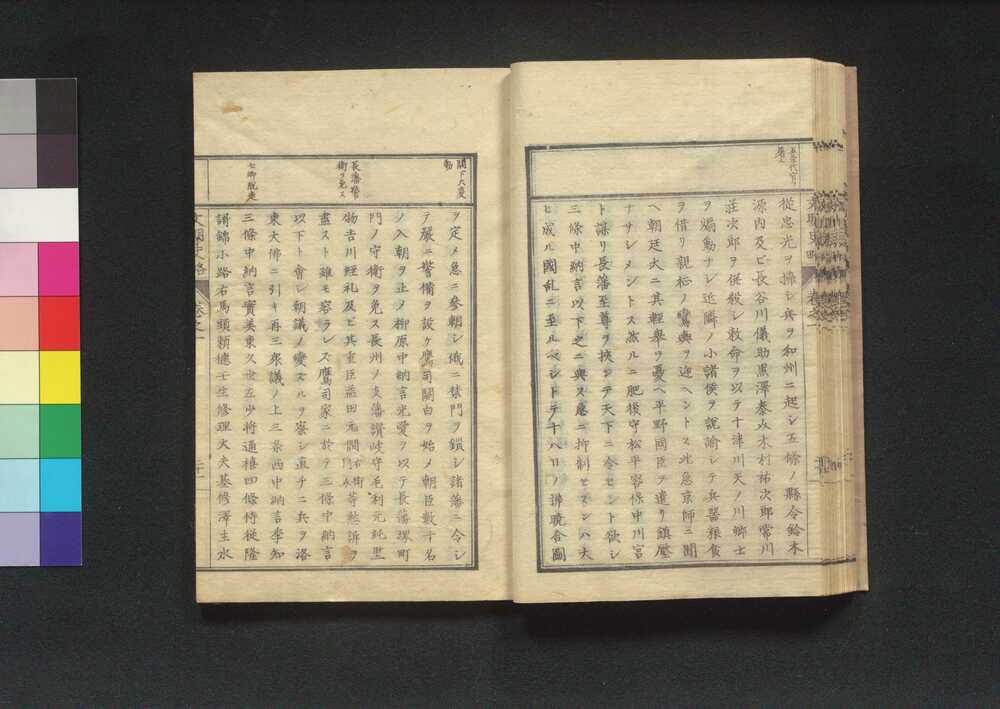 五条代官ヲ屠ル
從忠光ヲ擁シ兵ヲ和州ニ起シ五條ノ縣令鈴木
源内及ビ長谷川儀助黒澤泰助木村祐次郎常川
荘次郎ヲ従殺シ敕命ヲ以テ十津川天ノ川鄉士
ヲ煽動ナシ近隣ノ小諸侯ヲ説諭シテ兵器粮食
ヲ借リ親征ノ鸞輿ヲ迎ヘントス此急京師ニ聞
ヘ朝廷大ニ其輕舉ヲ憂ヘ平野國臣ヲ遣リ鎮壓
ナサシメントス然ルニ肥後守松平容保中川宮
ト謀リ長藩至尊ヲ挾ンデ天下ニ令セント欲シ
三條中納言以下之ニ與ス急ニ抑制セズンバ大
ヒ成ル國乱ニ至ルベシトテ十八日ノ拂曉合圖
闕下大慶動
長藩警衛ヲ免ス
七卿脱走
ヲ定メ急ニ參朝シ俄ニ禁門ヲ鎖シ諸藩ニ令シ
テ嚴ニ警備ヲ設ケ鷹司關白ヲ始メ朝臣數十名
ノ入朝ヲ止メ柳原中納言光愛ヲ以テ長藩堺町
門ノ守衛ヲ免ス長州ノ支藩讃岐守毛利元純監
物吉川經礼及ビ其重臣益田元間右衛門介等愁訴ヲ
盡スト雖モ容ラレズ鷹司家ニ於テ三條中納言
以下ト會シ朝議ノ變ズルヲ察シ直チニ兵ヲ洛
東大佛ニ引キ再三衆議ノ上三条西中納言季知
三條中納言實美東久世左少將通禧四條侍從隆
謌錦小路右馬頭頼德壬生修理大夫基修澤主水
文關史略 卷之一 二十一